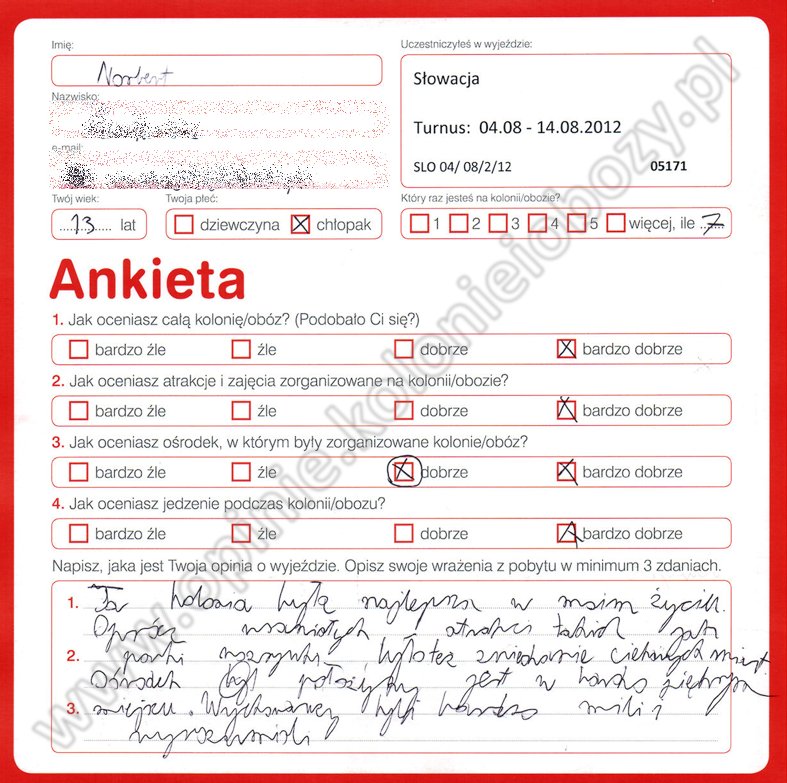 Imię:
Norbert
Nazwisko:
e-mail:
Uczestniczyłeś w wyjeździe:
Słowacja
Turnus: 04.08 - 14.08.2012
SLO 04/ 08/2/12 05171
Twój wiek: Twoja płeć: Który raz jesteś na kolonii/obozie?
13 lat dziewczyna chłopak 1 2 3 4 5 więcej, ile 7
Ankieta
1. Jak oceniasz całą kolonię/obóz? (Podobało Ci się?)
bardzo źle źle dobrze bardzo dobrze
2. Jak oceniasz atrakcje i zajęcia zorganizowane na kolonii/obozie?
bardzo źle źle dobrze bardzo dobrze
3. Jak oceniasz ośrodek, w którym były zorganizowane kolonie/obóz?
bardzo źle źle dobrze bardzo dobrze
4. Jak oceniasz jedzenie podczas kolonii/obozu?
bardzo źle źle dobrze bardzo dobrze
Napisz, jaka jest Twoja opinia o wyjeździe. Opisz swoje wrażenia z pobytu w minimum 3 zdaniach.
1. Ta kolonia była najlepsza w moim życiu.
Oprócz wspaniałych atrakcji takich jak
2. parki rozrywki, było też zwiedzanie ciekawych miast.
Ośrodek był położony jest w bardzo
3. miejscu. Wychowawcy byli bardzo mili i
wyrozumiali
www.opinie.kolonieiobozy.pl